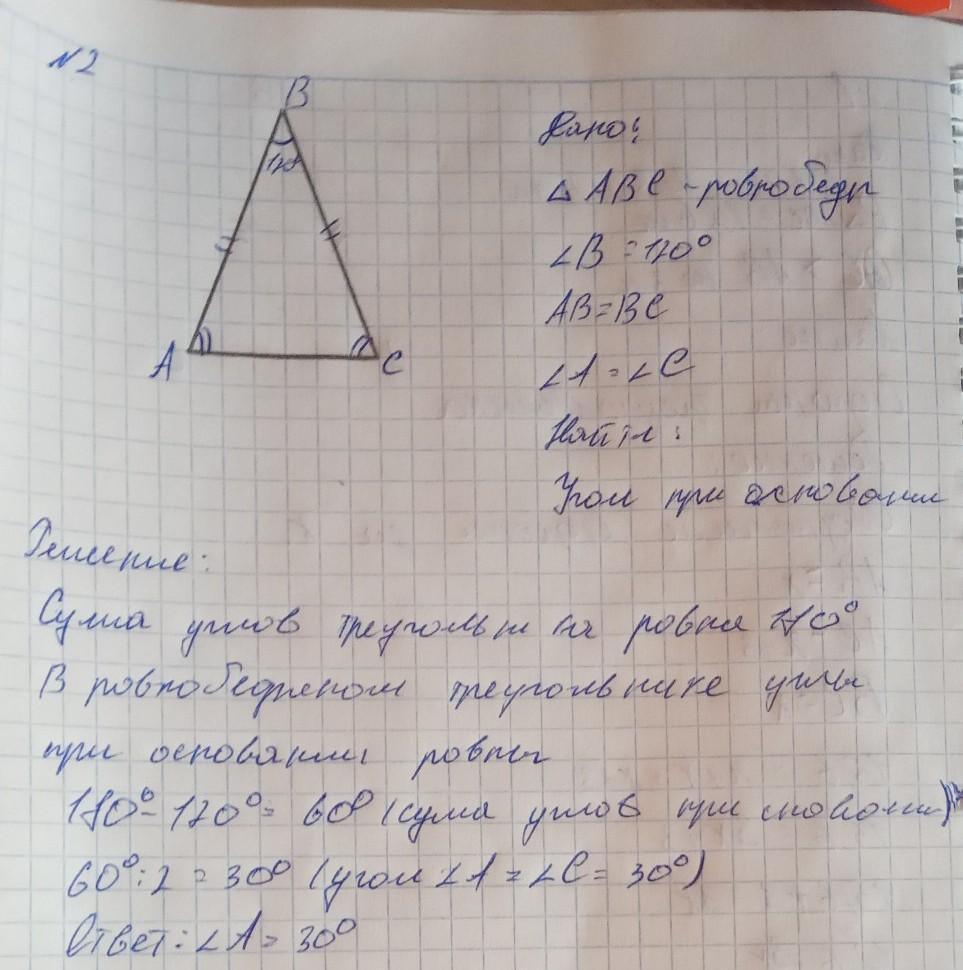 N2
B
120°
A
C
Дано:
△ ABC - ровнобедр
∠B = 120°
AB = BC
∠A = ∠C
Найти:
Угол при основании
Решение:
Сумма углов треугольника ровна 180°
В ровнобедреном треугольнике углы
при основании ровны
180° - 120° = 60° (сума углов при сновании)
60° : 2 = 30° (угол ∠A = ∠C = 30°)
Ответ: ∠A = 30°